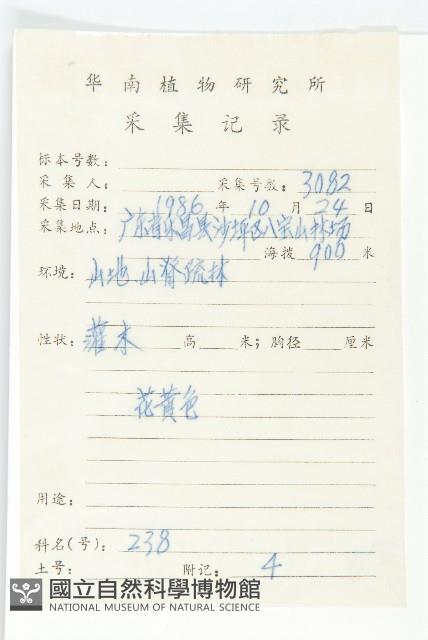 华南植物研究所
采集记录
标本号数：
采集人： 采集号数：3082
采集日期：1986年10月24日
采集地点：广东省乐昌县沙坪区八宝山林场
海拔 900 米
环境：山地.山脊疏林
性状：灌木 高 米；胸径 厘米
花黄色
用途：
科名(号)：238
土号： 附记：4
國立自然科學博物館
NATIONAL MUSEUM OF NATURAL SCIENCE